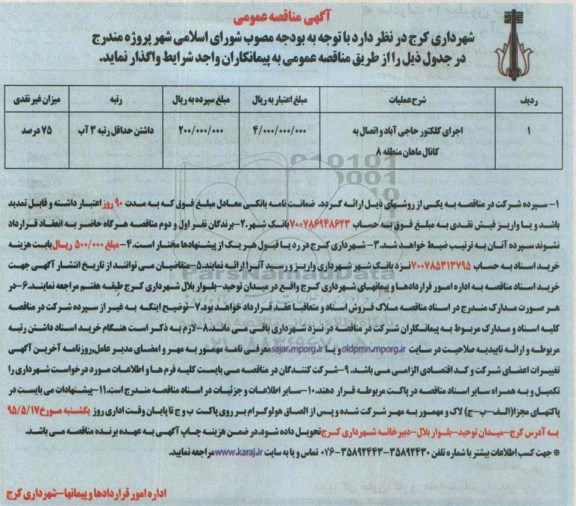 آگهی مناقصه عمومی
شهرداری کرج در نظر دارد با توجه به بودجه مصوب شورای اسلامی شهر پروژه مندرج
در جدول ذیل را از طریق مناقصه عمومی به پیمانکاران واجد شرایط واگذار نماید.
ردیف شرح عملیات مبلغ اعتبار به ریال مبلغ سپرده به ریال رتبه میزان غیر نقدی
۱ اجرای کلکتور حاجی آباد و اتصال به ۴/۰۰۰/۰۰۰/۰۰۰ ۲۰۰/۰۰۰/۰۰۰ داشتن حداقل رتبه ۳ آب ۷۵ درصد
کانال ماهان منطقه ۸
۱- سپرده شرکت در مناقصه به یکی از روشهای ذیل ارائه گردد. ضمانت نامه بانکی معادل مبلغ فوق که به مدت ۹۰ روز اعتبار داشته و قابل تمدید
باشد و یا واریز فیش نقدی به مبلغ فوق به حساب ۷۰۰۷۸۶۹۴۸۶۲۳ بانک شهر.۲-برندگان نفر اول و دوم مناقصه هرگاه حاضر به انعقاد قرارداد
نشوند سپرده آنان به ترتیب ضبط خواهد شد.۳- شهرداری کرج در رد یا قبول هر یک از پیشنهادها مختار است.۴-مبلغ ۵۰۰/۰۰۰ ریال بابت هزینه
خرید اسناد به حساب ۷۰۰۷۸۵۳۱۳۷۹۵ نزد بانک شهر شهرداری واریز و رسید آنرا ارائه نمایند.۵-متقاضیان می توانند از تاریخ انتشار آگهی جهت
خرید اسناد مناقصه به اداره امور قراردادها و پیمانهای شهرداری کرج واقع در میدان توحید-بلوار بلال شهرداری کرج طبقه هفتم مراجعه نمایند.۶-در
هر صورت مدارک مندرج در اسناد مناقصه ملاک فروش اسناد و متعاقبا عقد قرارداد خواهد بود.۷-توضیح اینکه به غیر از سپرده شرکت در مناقصه
کلیه اسناد و مدارک مربوط به پیمانکاران شرکت در مناقصه در نزد شهرداری باقی می ماند.۸-لازم به ذکر است هنگام خرید اسناد داشتن رتبه
مربوطه و ارائه تاییدیه صلاحیت در سایت oldpmn.mporg.ir و یا sajar.mporg.ir معرفی نامه ممهور به مهر و امضای مدیر عامل،روزنامه آخرین آگهی
تغییرات اعضای شرکت و کد اقتصادی الزامی می باشد. ۹-شرکت کنندگان در مناقصه می بایست کلیه فرم ها و اطلاعات مورد درخواست شهرداری را
تکمیل و به همراه سایر اسناد مناقصه در پاکت مربوطه قرار دهند.۱۰-سایر اطلاعات و جزئیات در اسناد مناقصه مندرج است.۱۱-پیشنهادات می بایست در
پاکتهای مجزا(الف-ب-ج) لاک و ممهور به مهر شرکت شده و پس از الصاق هولوگرام بر روی پاکت ب و ج تا پایان وقت اداری روز یکشنبه مورخ ۹۵/۵/۱۷
به آدرس کرج-میدان توحید-بلوار بلال-دبیرخانه شهرداری کرج تحویل داده شود.در ضمن هزینه چاپ آگهی به عهده برنده مناقصه می باشد.
* جهت کسب اطلاعات بیشتر با شماره تلفن ۳۵۸۹۲۴۳۰-۳۵۸۹۲۴۴۳-۰۲۶ تماس و یا به سایت www.karaj.ir مراجعه نمایید.
اداره امور قراردادها و پیمانها-شهرداری کرج
ParsNamadData